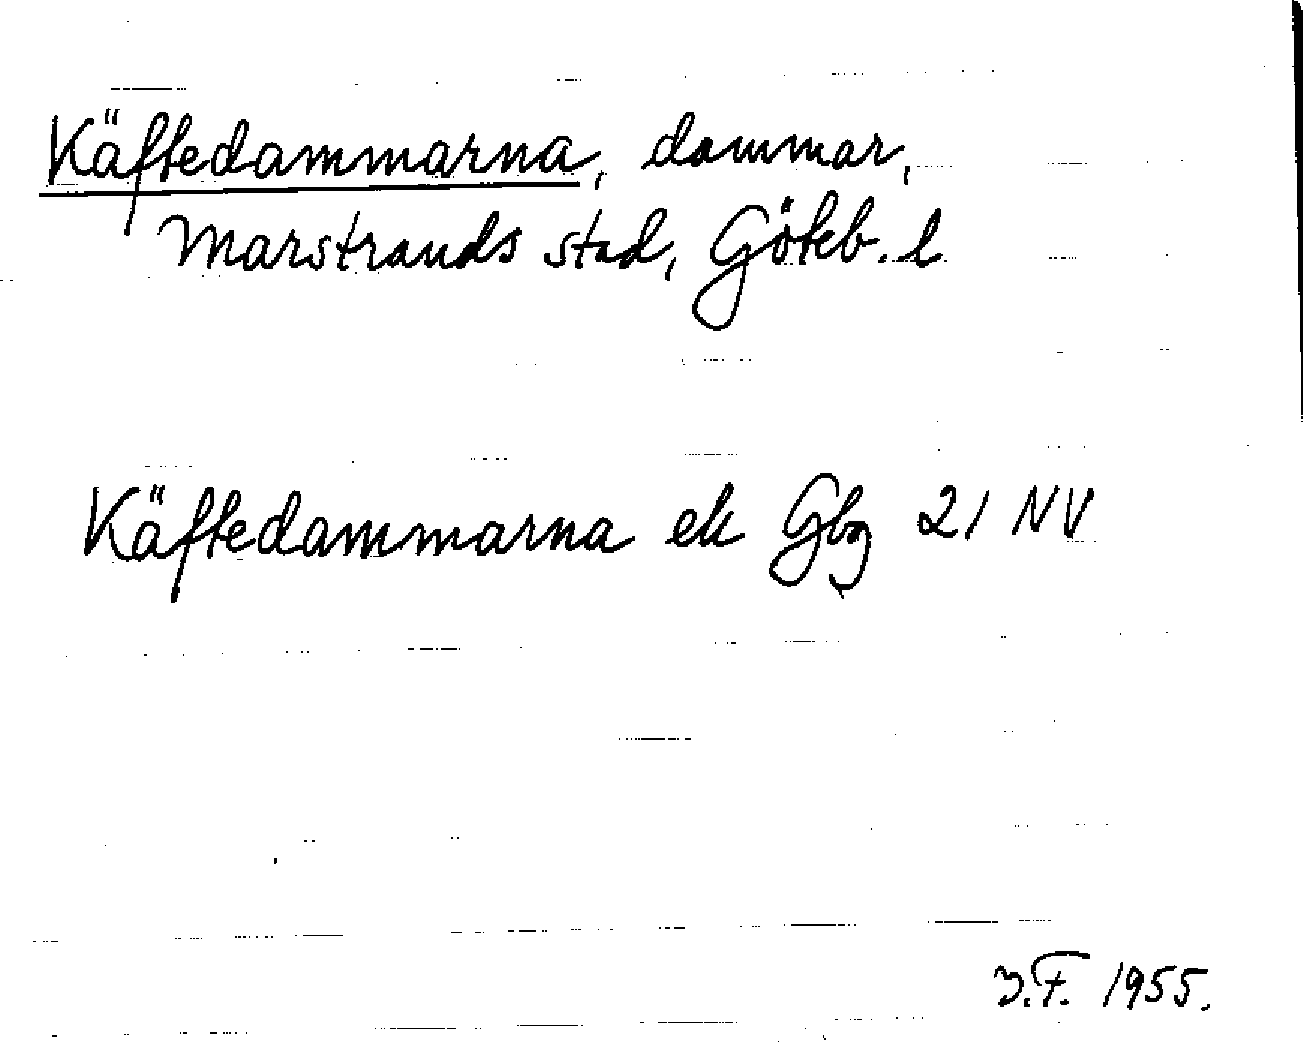 Käftedammarna, dammar,
Marstrands stad, Göteb. l
Käftedammarna ek Gbg 21 NV
3.F. 1955.